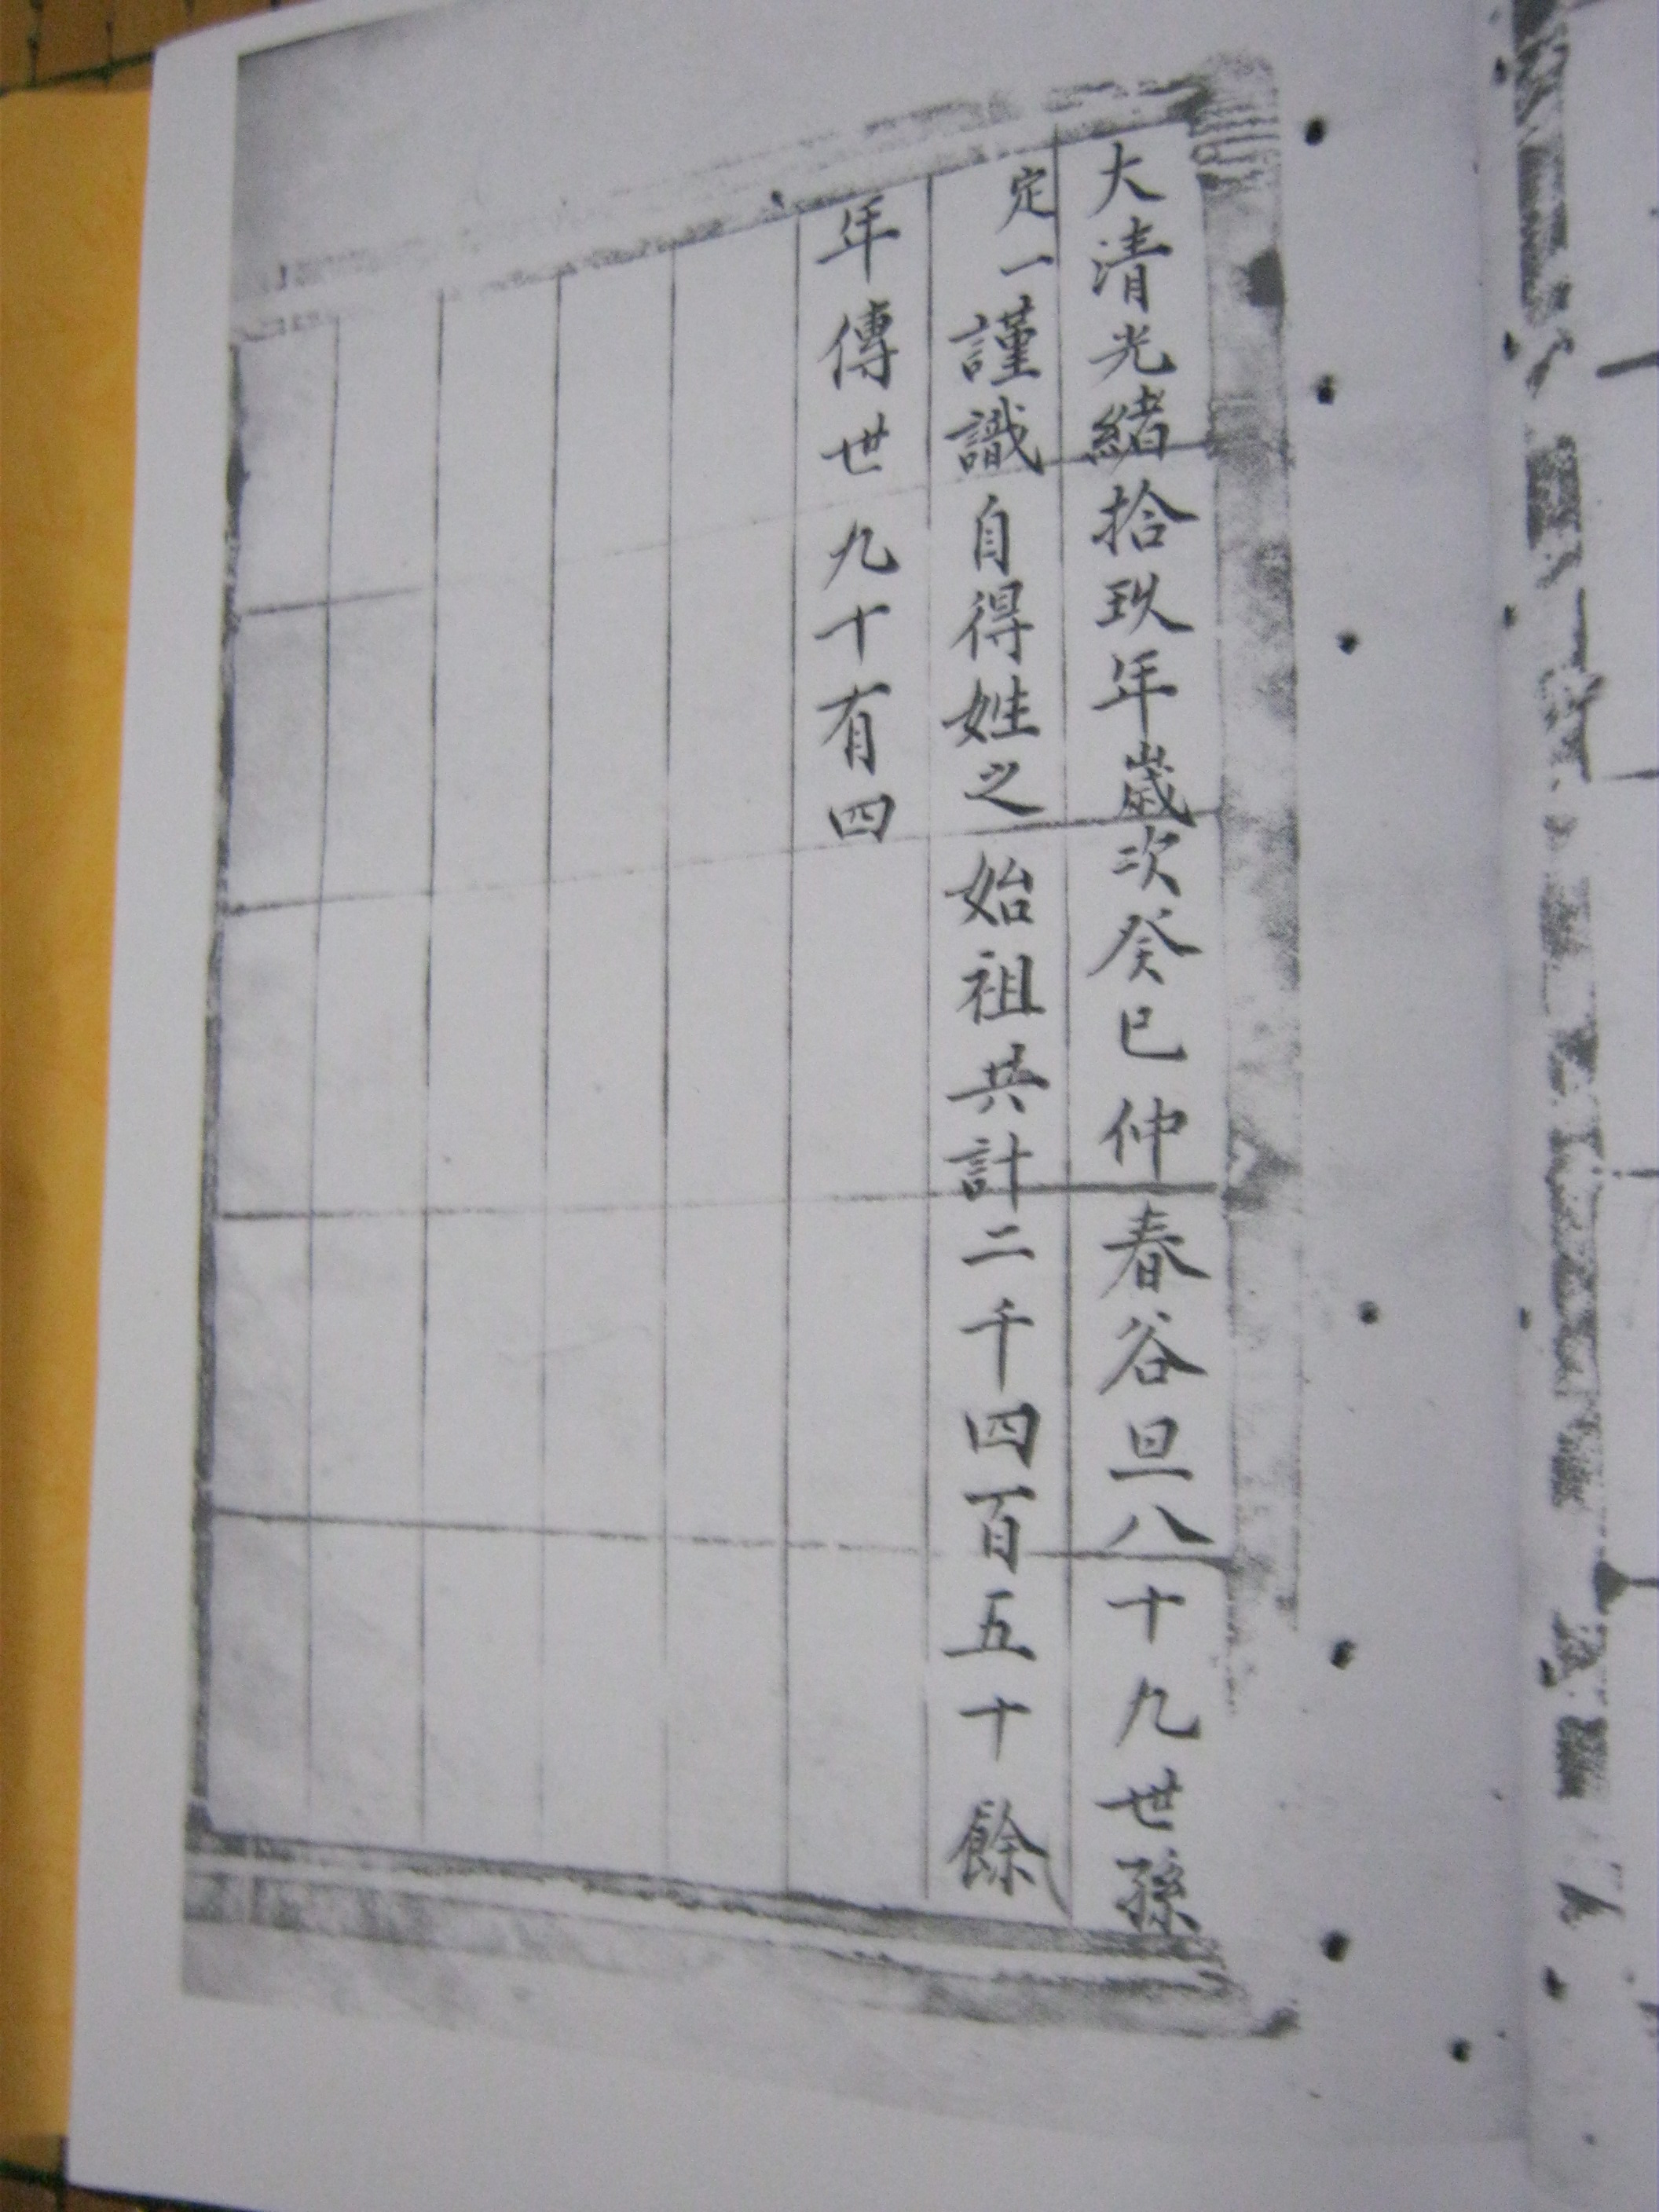 大清光緒拾玖年歲次癸巳仲春谷旦八十九世孫
定一謹識自得姓之始祖共計二千四百五十餘
年傳世九十有四